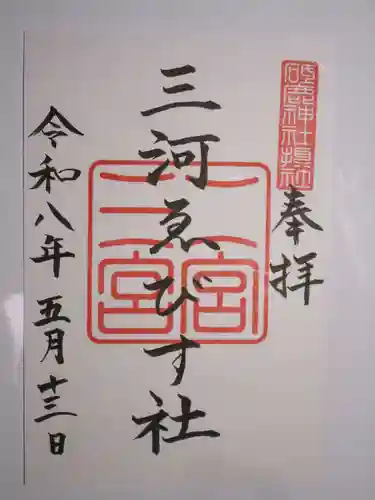 砥鹿神社摂社
奉拝
三河ゑびす社
三河一宮
令和八年五月十三日